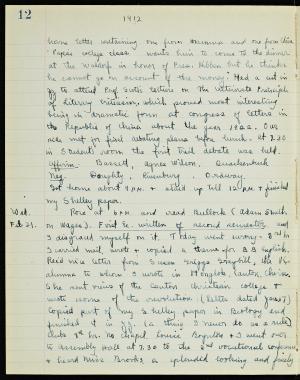 12
1912
home letter containing one from Mamma and one from China
Papa's college class wants him to come to the dinner
at the Waldorf in honor of Pres. Hibben but he thinks
he cannot go on account of the money. Had a cut in
to attend Prof. Scott's lecture on The Ultimate Principle
of Literary Criticism, which proved most interesting
being in dramatic form at congress of letters in
the Republic of China about the year 1922. Our
side met for final debating plans after lunch. At 7.30
in Students' room the first trial debate was held.
Affirm. Bassett, Agnes Wilson, Quackenbush
Neg. Doughty, Ordway.
Got home about 9 P.M. & stayed up till 12 P.M. & finished
my Shelley paper.
Wed. Rose at 6 A.M. and read Bullock (Adam Smith
Feb. 21. on Wages). Ec. written
I disgraced myself in it.
I carried mail, wrote & copied a theme for English
Rec'd nice letter from
alumna to whom I wrote in Honglok, Canton, China.
She sent views of the Canton Christian College &
wrote some of the revolution. (Letter dated Jan. 7)
Copied part of my Shelley paper in Biology and
finished it in (a thing I never do as a rule)
hr. No chapel. Louise and I went over
to Assembly Hall at 7.30 to the 2nd vocational conference
& heard Miss Brooks, a splendid looking and finely